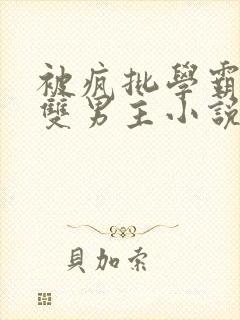 被疯批學霸
雙男主小說
貝加索